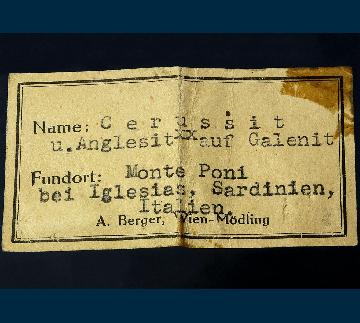 Name: Cerussit
u.Anglesitxx auf Galenit
Fundort: Monte Poni
bei Iglesias, Sardinien,
Italien.
A. Berger, Wien-Mödling